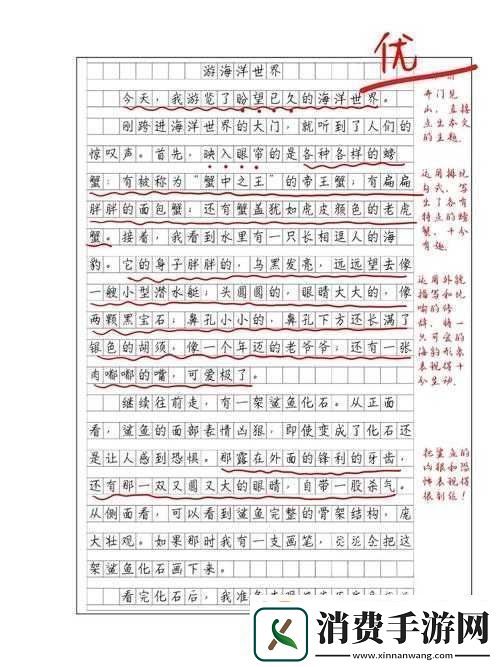 优
游海洋世界
今天，我游览了盼望已久的海洋世界。
刚跨进海洋世界的大门，就听到了人们的
惊叹声。首先，映入眼帘的是各种各样的螃
蟹：有被称为“蟹中之王”的帝王蟹；有扁扁
胖胖的面包蟹；还有蟹盖犹如虎皮颜色的老虎
蟹。接着，我看到水里有一只长相逗人的海
豹。它的身子胖胖的，乌黑发亮，远远望去像
一艘小型潜水艇；头圆圆的，眼睛大大的，像
两颗黑宝石；鼻孔小小的，鼻孔下方还长满了
银色的胡须，像一个年迈的老爷爷；还有一张
肉嘟嘟的嘴，可爱极了。
继续往前走，有一架鲨鱼化石。从正面
看，鲨鱼的面部表情凶狠，即使变成了化石还
是让人感到恐惧。那露在外面的锋利的牙齿，
还有那一双又圆又大的眼睛，自带一股杀气。
从侧面看，可以看到鲨鱼完整的骨架结构，庞
大壮观。如果那时我有一支画笔，一定会把这
架鲨鱼化石画下来。
看完化石后，我准
开门见
山，直接
点出本文
的主题。
运用排比
句式，写
出了各有
特点的螃
蟹，十分
有趣。
运用外貌
描写和比
喻的修
辞，将一
只可爱的
海豹形象
表现得十
分生动。
把鲨鱼的
凶狠和恐
怖表现得
很到位！
消费手游网
www.xinnanwang.com